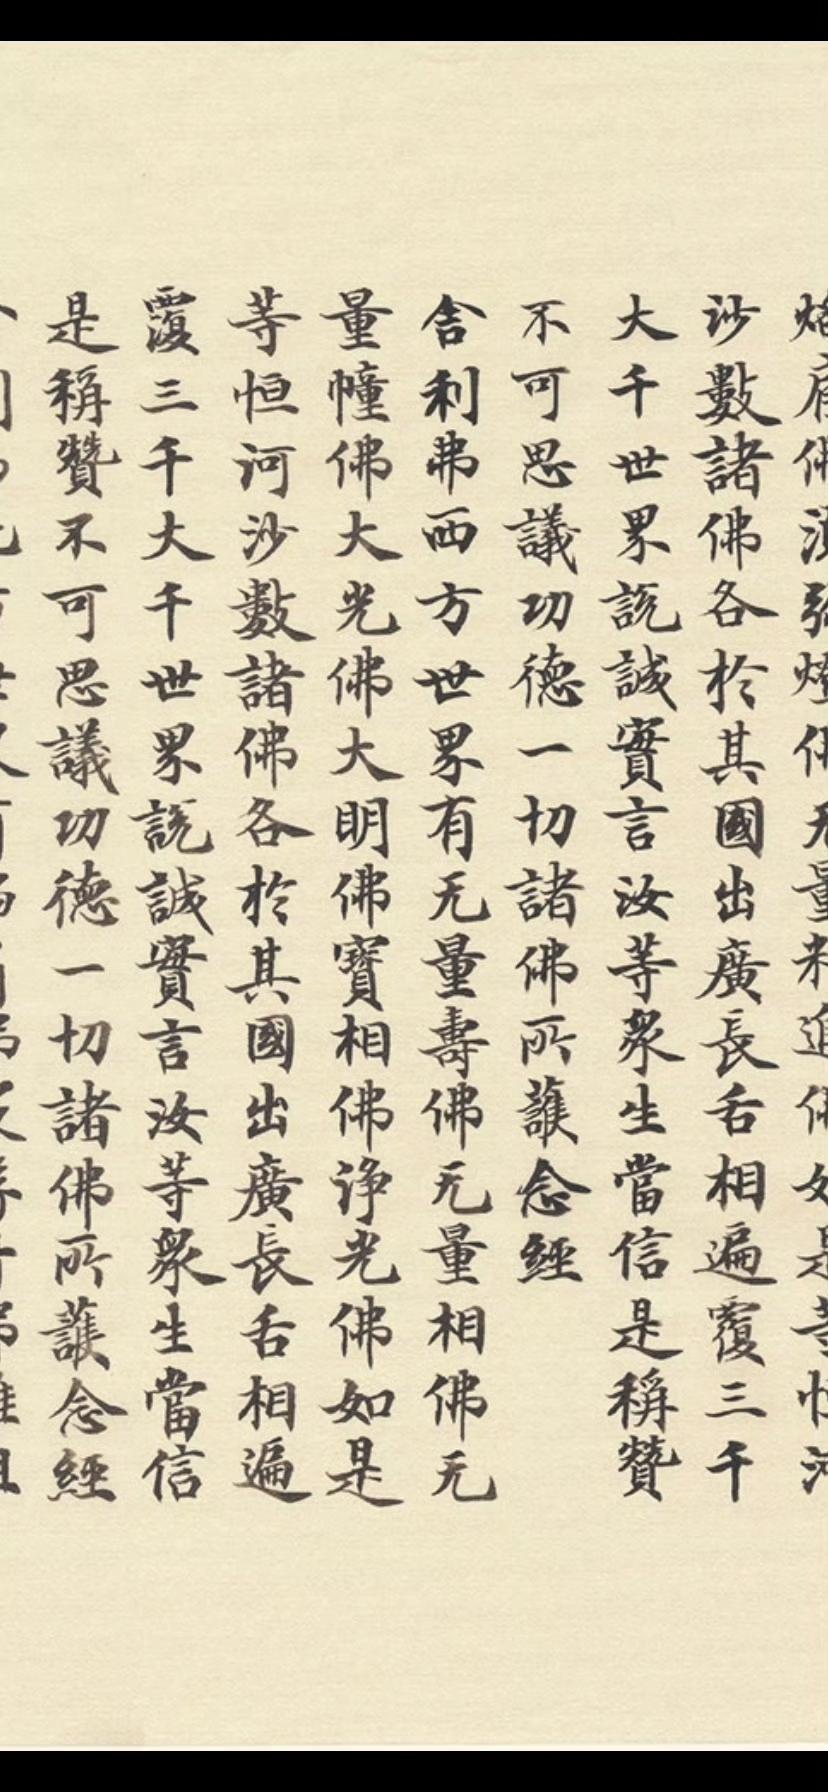 焰肩佛須弥燈佛无量精進佛如是等恒河
沙數諸佛各於其國出廣長舌相遍覆三千
大千世界說誠實言汝等衆生當信是稱贊
不可思議功德一切諸佛所護念經
舍利弗西方世界有无量壽佛无量相佛无
量幢佛大光佛大明佛寶相佛淨光佛如是
等恒河沙數諸佛各於其國出廣長舌相遍
覆三千大千世界說誠實言汝等衆生當信
是稱贊不可思議功德一切諸佛所護念經